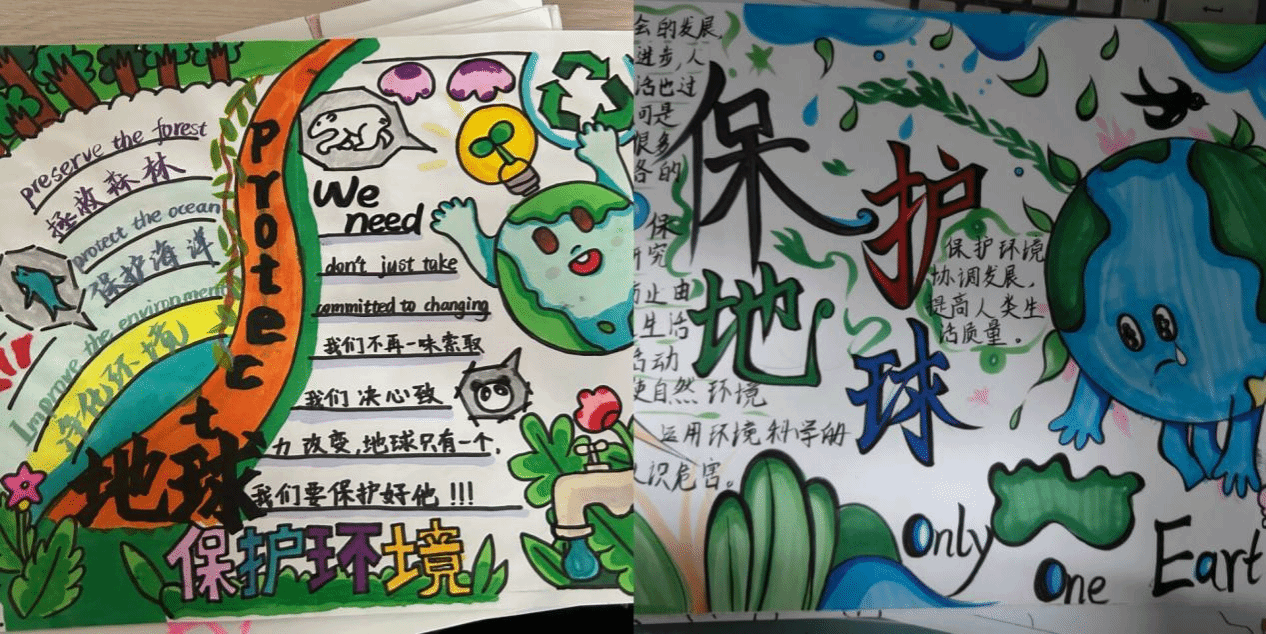 preserve the forest
拯救森林
protect the ocean
保护海洋
Improve the environment
净化环境
Protect
地球
We
need
don't just take
committed to changing
我们不再一味索取
我们决心致
力改变,地球只有一个,
我们要保护好他!!!
保护环境
会的发展,
进步,人
活也过
可是
很多
各的
保
研究
防止由
生活
活动
使自然环境
运用环境科学的
认识危害。
保护
地球
保护环境
协调发展,
提高人类生
活质量。
Only
One
Eart